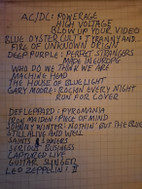 AC/DC: POWERAGE
HIGH VOLTAGE
BLOW UP YOUR VIDEO
BLUE OYSTER CULT: TYRANNY AND
FIRE OF UNKNOWN ORIGIN
DEEP PURPLE: PERFECT STRANGERS
MADE IN EUROPE
WHO DO WE THINK WE ARE
MACHINE HEAD
THE HOUSE OF BLUE LIGHT
GARY MOORE: ROCKIN EVERY NIGHT
RUN FOR COVER
DEF LEPPARD: PYROMANIA
IRON MAIDEN: PIECE OF MIND
JOHNNY WINTER: NOTHIN' BUT THE BLUES
STILL ALIVE AND WELL
SAINTS & SINNERS
SERIOUS BUSINESS
CAPTURED LIVE
GUITAR SLINGER
LED ZEPPELIN: II